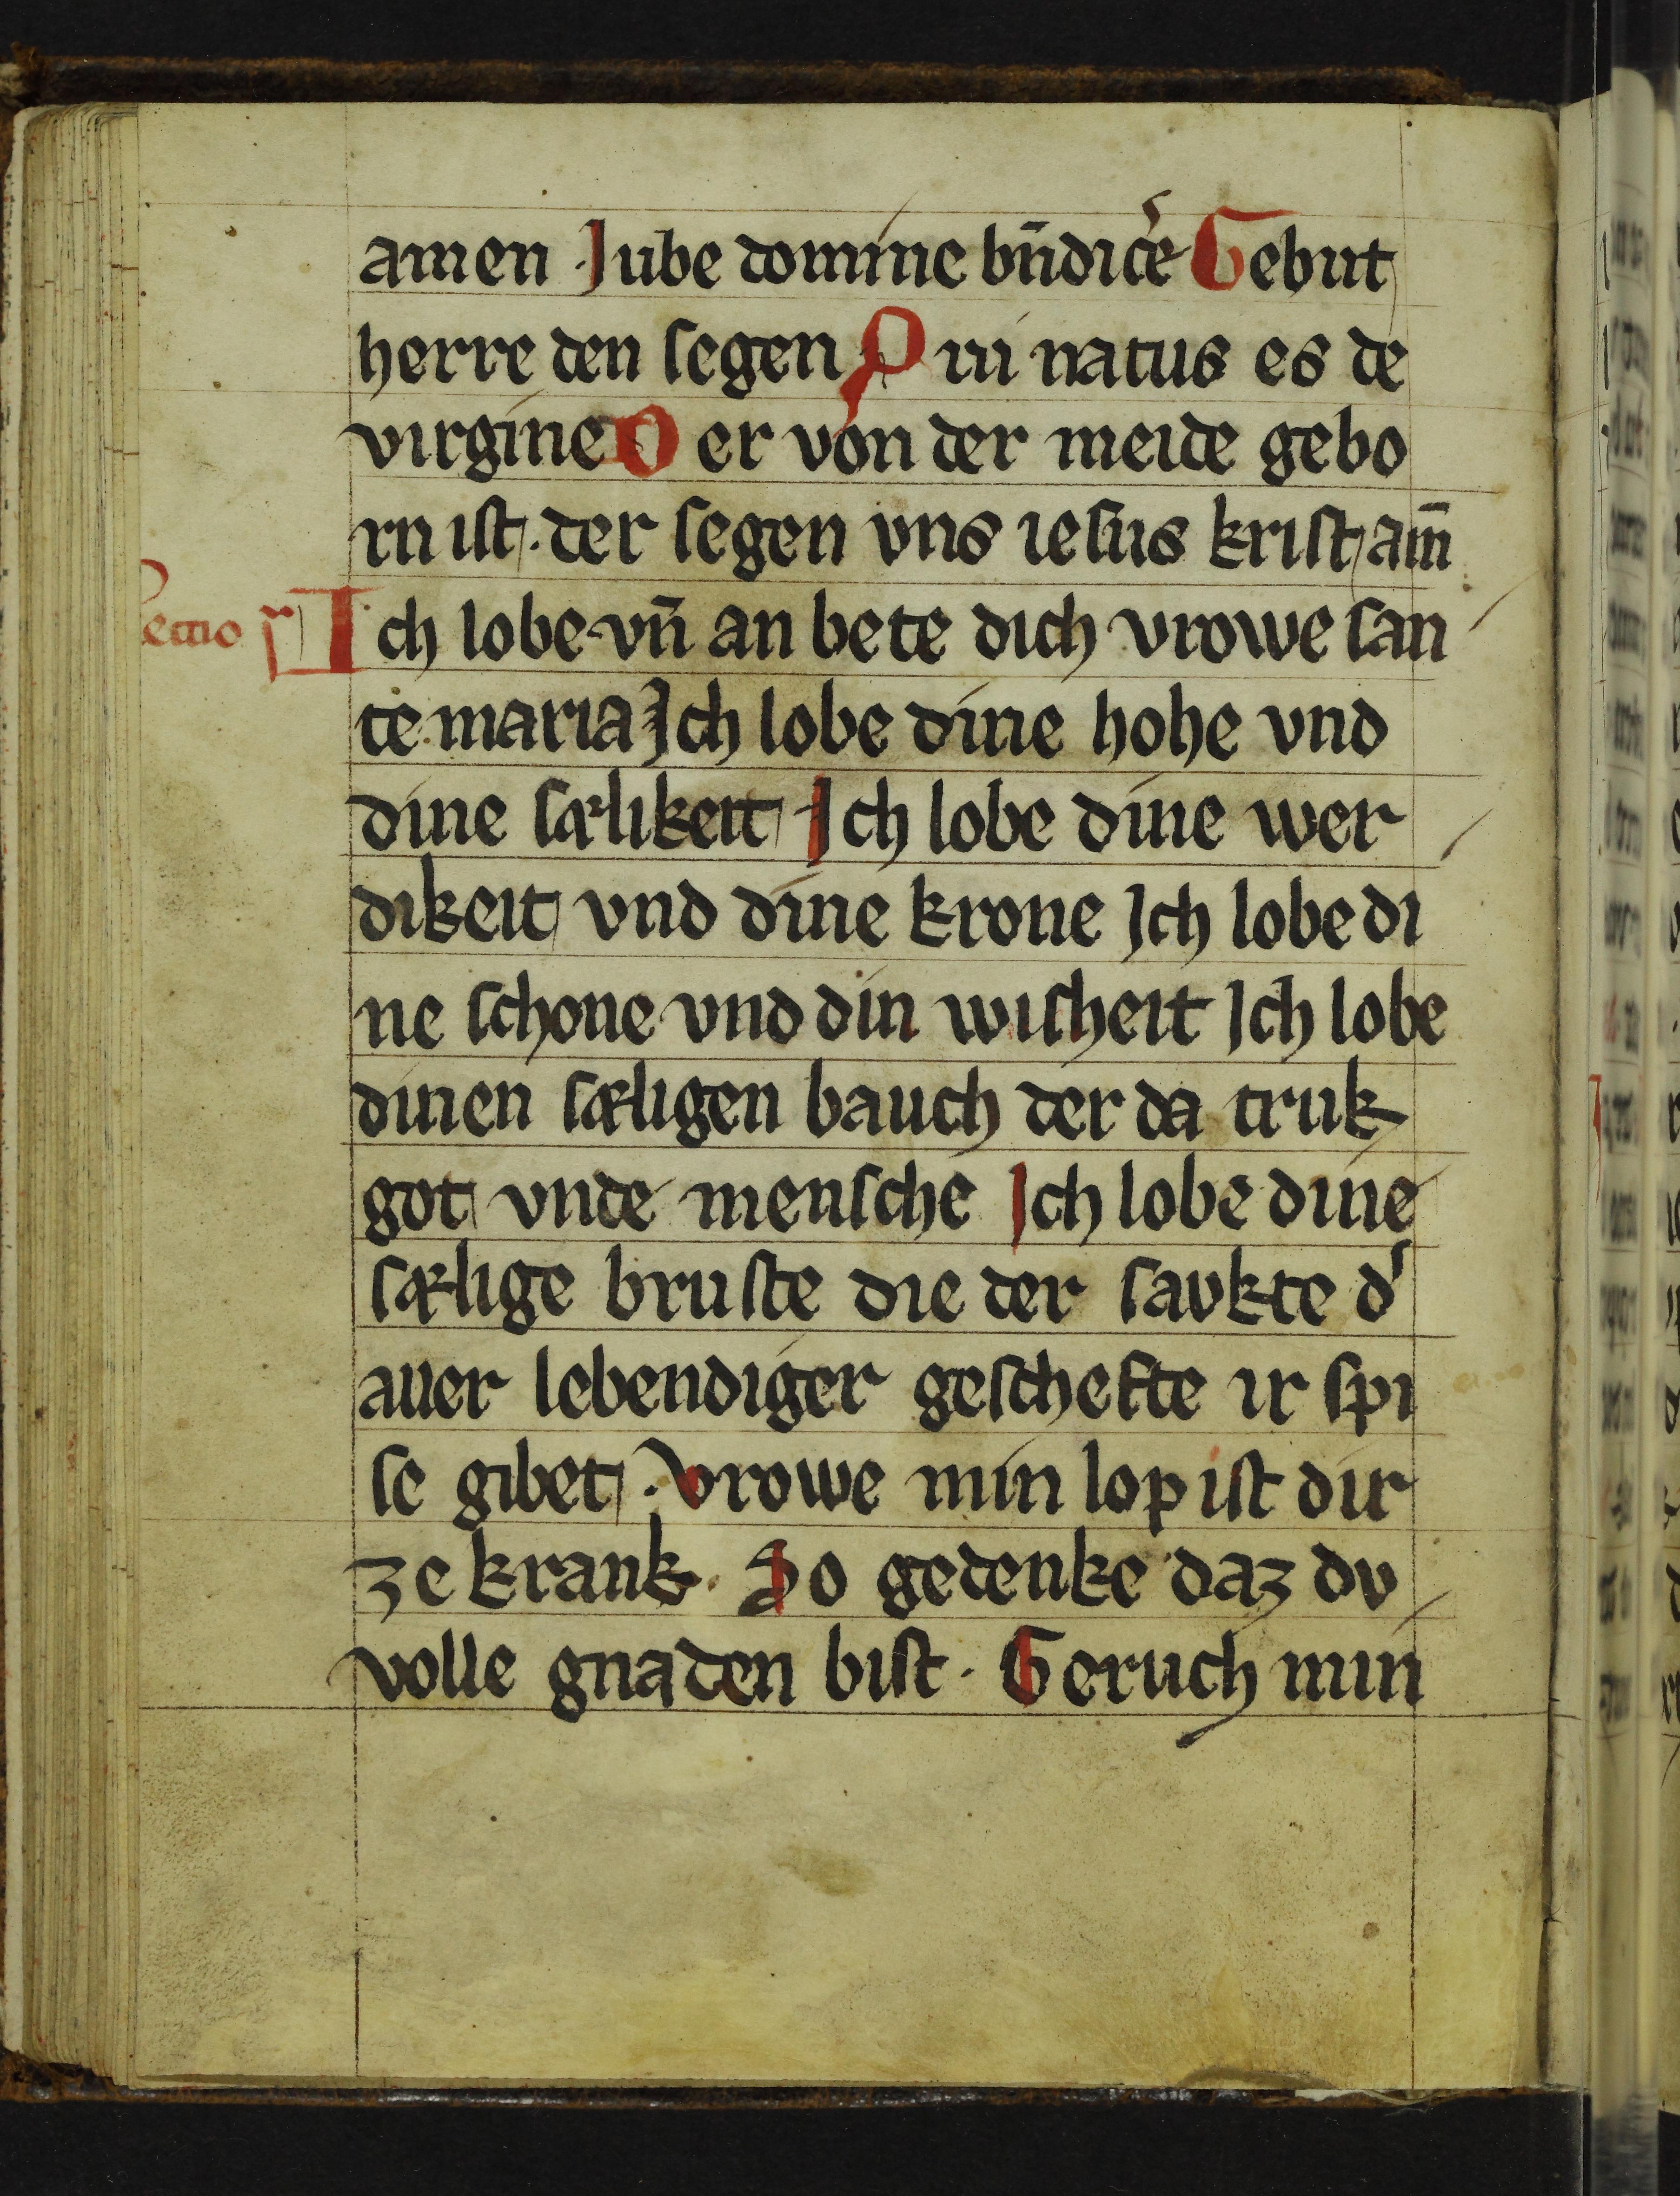 amen Jube domine bn̄dicē Gebut
herre den segen Qui natus es de
virgine Der von der meide gebo
rn ist. der segen vns iesus krist am̄
Lectio
Ich lobe vn̄ an bete dich vrowe san
te maria Ich lobe dine hohe vnd
dine sælikeit Ich lobe dine wer
dikeit vnd dine krone Ich lobe di
ne schone vnd din wisheit Ich lobe
dinen sæligen bauch der da truk
got vnde mensche Ich lobe dine
sælige bruste die der savkte d'
aller lebendiger geschefte ir spi
se gibet. Vrowe min lop ist dir
ze krank. So gedenke daz dv
volle gnaden bist. Geruch min